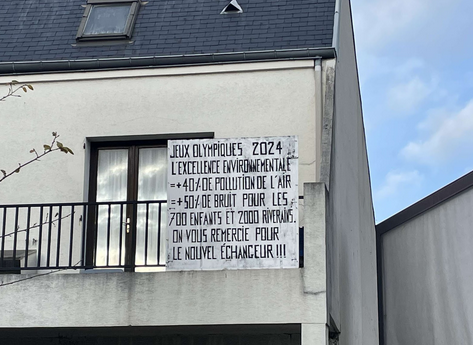 JEUX OLYMPIQUES 2024
L'EXCELLENCE ENVIRONNEMENTALE
=+40% DE POLLUTION DE L'AIR
=+50% DE BRUIT POUR LES
700 ENFANTS ET 2000 RIVERAINS.
ON VOUS REMERCIE POUR
LE NOUVEL ÉCHANGEUR!!!